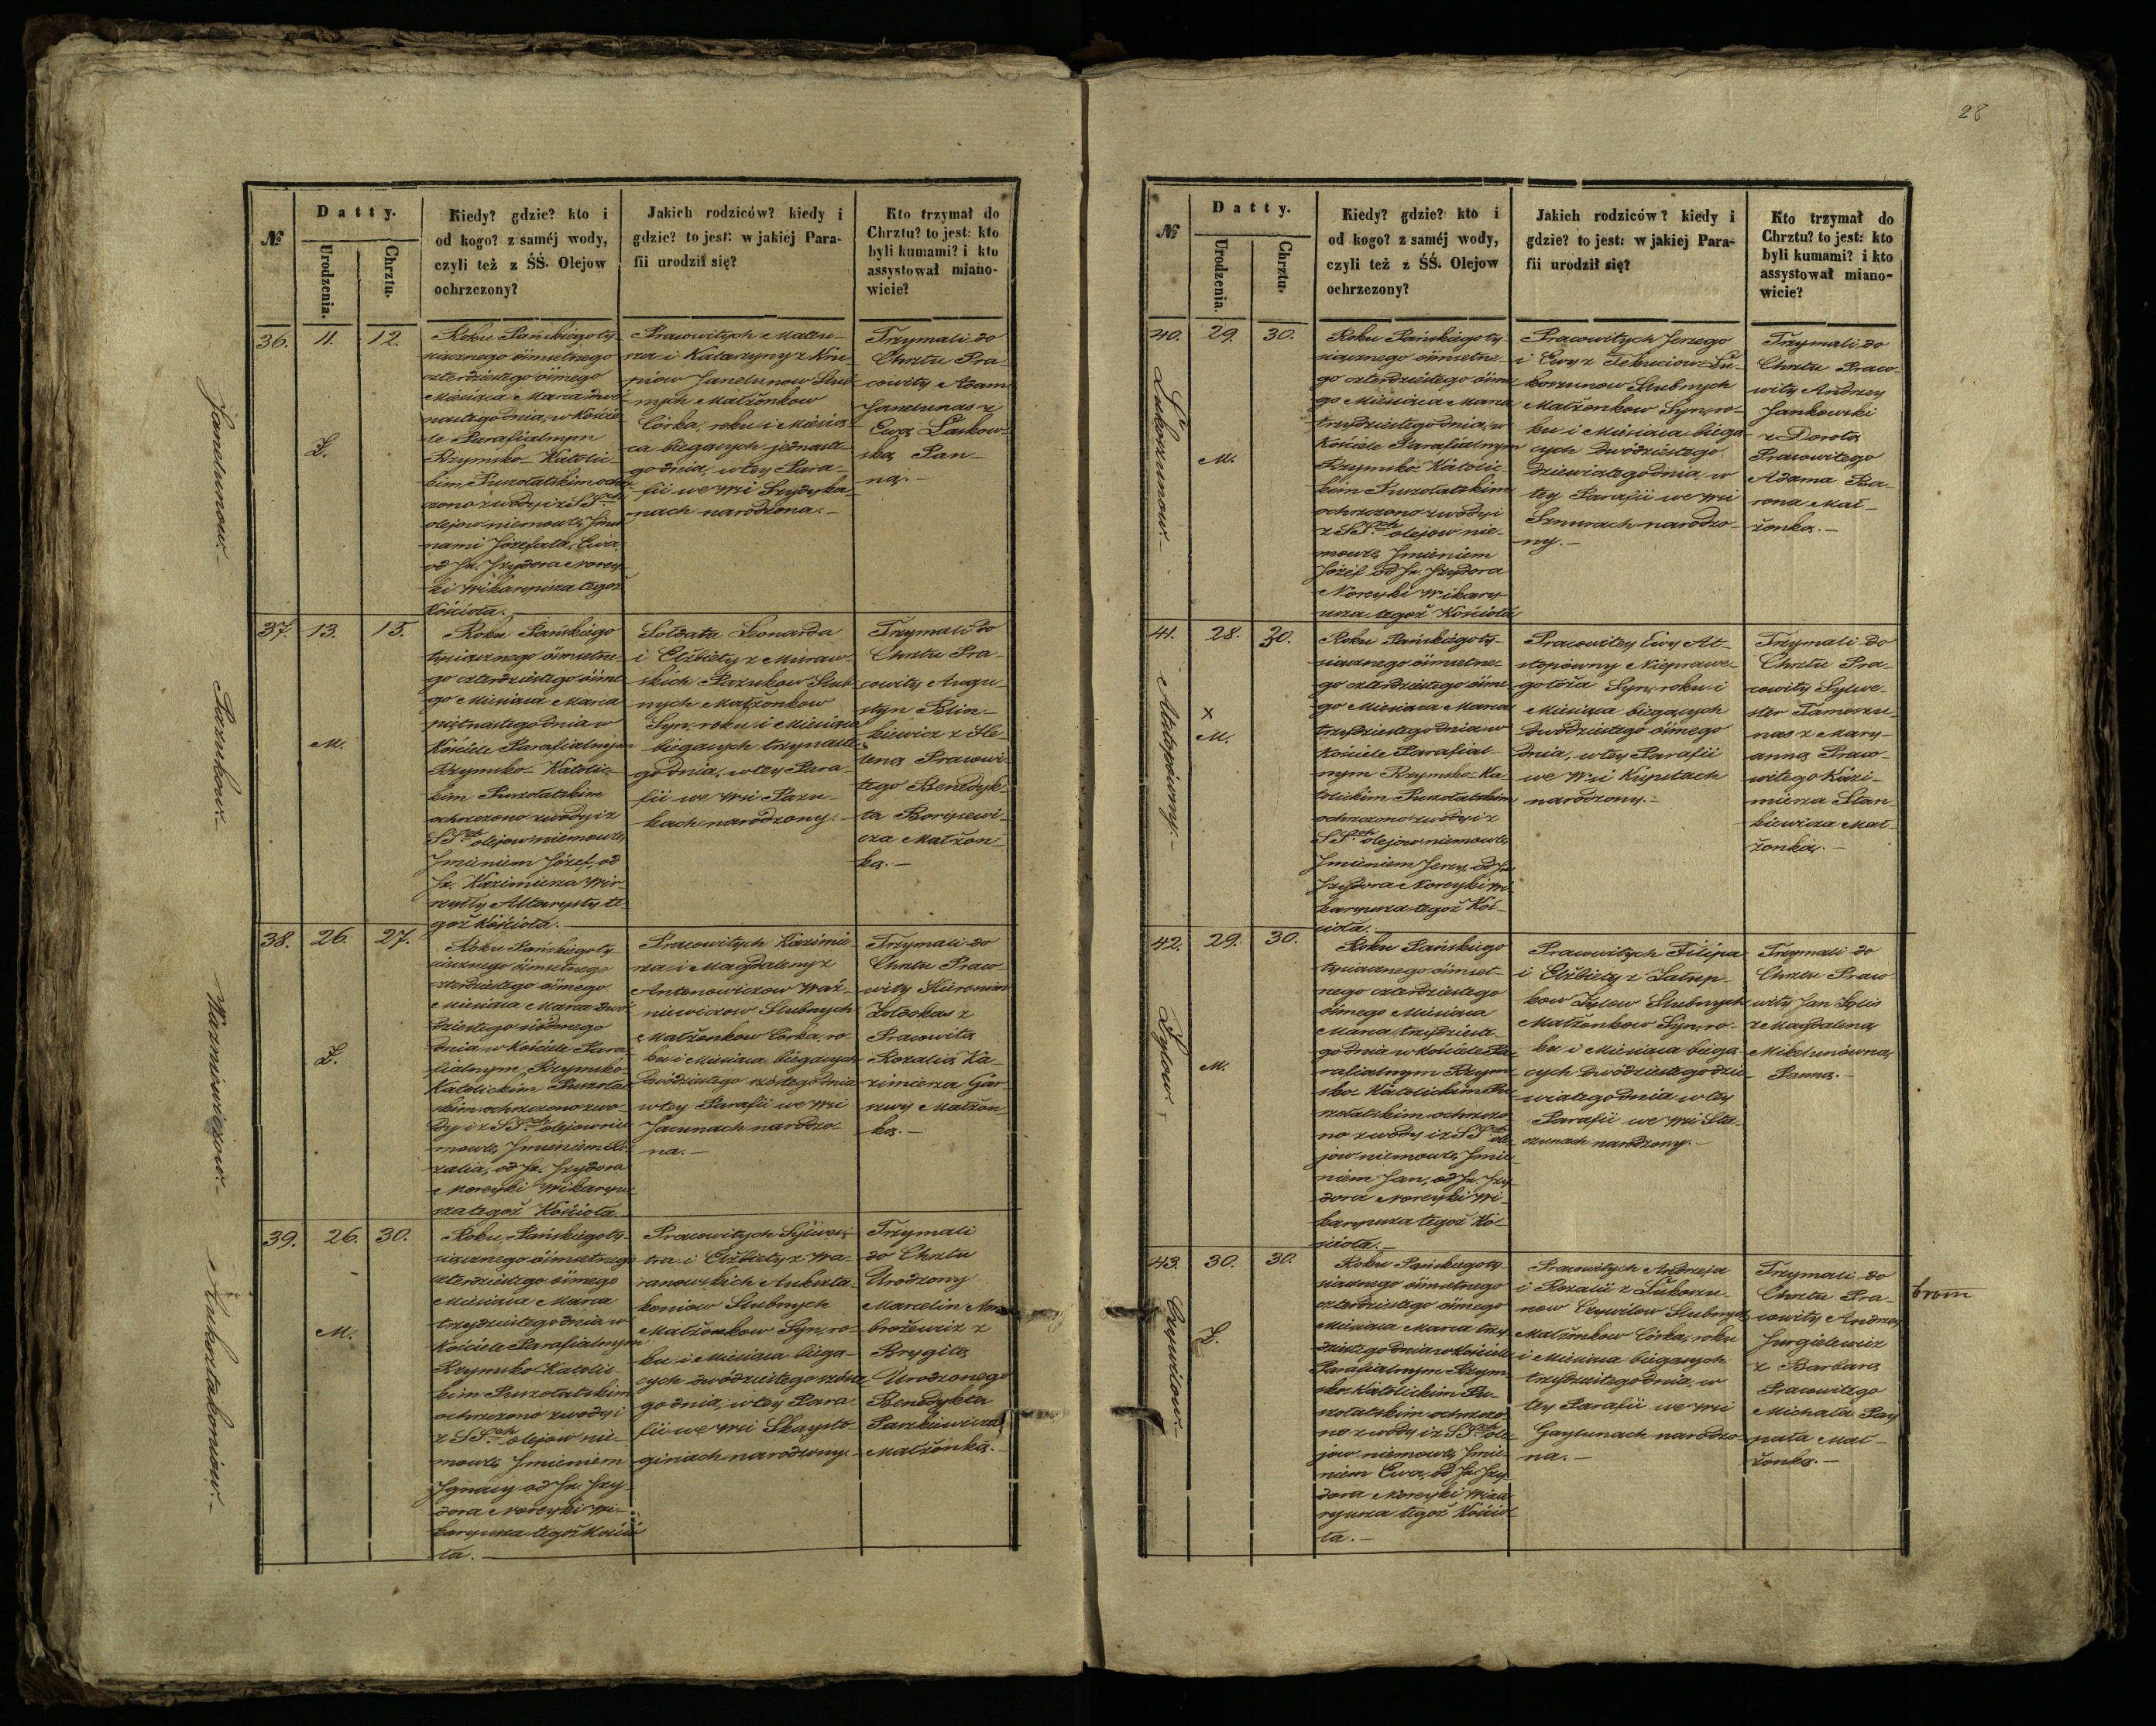 28
№
Datty.
Urodzenia.
Chrztu.
Kiedy? gdzie? kto i
od kogo? z saméj wody,
czyli też z ŚŚ. Olejow
ochrzczony?
Jakich rodziców? kiedy i
gdzie? to jest: w jakiej Para-
fii urodził się?
Kto trzymał do
Chrztu? to jest: kto
byli kumami? i kto
assystował miano-
wicie?
Janelunow.-
36.
11.
12.
Ż.
Roku Pańskiego ty-
siącznego ośmsetnego
czterdziestego ósmego
Miesiąca Marca dwó-
nastego dnia, w Koście-
le Parafialnym
Rzymsko-Katolic-
kim Puszołatskim ochrz-
czono z wody i z SS.ch
olejow niemowle, Jmio-
nami Jozefata, Ewa,
od Jx. Jzydora Noreyki
Wikaryusza tegoż
Kościoła.-
Pracowitych Mateu-
sza i Katarzyny z
Janelunow Ślub-
nych Małżonkow
Córka, roku i Miesią-
ca bieganych jednaste-
go dnia, w tey Para-
fii we Wsi Szydyka-
nach narodzona.-
Trzymali do
Chrztu Pra-
cowity Adam
Janelunas z
Ewą Laskow-
ską Pan-
ną.-
Pazukow.-
37.
13.
15.
M.
Roku Pańskiego
tysiącznego ośmsetne-
go czterdziestego ósme-
go Miesiąca Marca
piętnastego dnia w
Kościele Parafialnym
Rzymsko-Katolic-
kim Puszołatskim
ochrzczono z wody i z
SS.ch olejow niemowle,
Jmieniem Józef, od
Jx. Kazimierza
Altarysty te-
goż Kościoła.-
Sołdata Leonarda
i Elżbiety z Muraw-
skich Pazukow Ślub-
nych Małżonkow
Syn, roku i Miesiąca
biegących trzynaste-
go dnia, w tey Para-
fii we Wsi Pazu-
kach narodzony.-
Trzymali do
Chrztu Pra-
cowity Augu-
styn Blin-
kiewicz z He-
leną Pracowi-
tego Benedyk-
ta Borysewi-
cza Małżon-
ką.-
Wazniewiczow.-
38.
26.
27.
Ż.
Roku Pańskiego ty-
siącznego ośmsetnego
czterdziestego ósmego
Miesiąca Marca dwu-
dziestego siódmego
dnia w Kościele Para-
fialnym Rzymsko-
Katolickim Puszołat-
skim ochrzczono z wo-
dy i z SS.ch olejow nie-
mowle, Jmieniem Ro-
zalia, od Jx. Jzydora
Noreyki Wikaryu-
sza tegoż Kościoła.
Pracowitych Kazimie-
rza i Magdaleny z
Antonowiczow Waź-
niewiczow Ślubnych
Małżonkow Córka, ro-
ku i Miesiąca biegących
dwódziestego szóstego dnia
w tey Parafii we Wsi
Jacunach narodzo-
na.-
Trzymali do
Chrztu Praco-
wity Hieronim
Żołdokas z
Pracowitą
Rozalią Ka-
zimierza Gar-
szwy Małżon-
ką.-
Aukszlakoniow.-
39.
26.
30.
M.
Roku Pańskiego ty-
siącznego ośmsetnego
czterdziestego ósmego
Miesiąca Marca
trzydziestego dnia w
Kościele Parafialnym
Rzymsko Katolic-
kim Puszołatskim
ochrzczono z wody i
z SS.ch olejow nie-
mowle Jmieniem
Jgnacy od Jx. Jzy-
dora Noreyki Wi-
karyusza tegoż Kościo-
ła.-
Pracowitych Sylwes-
tra i Elżbiety z Wa-
ranowskich Aukszta-
koniow Ślubnych
Małżonkow Syn, ro-
ku i Miesiąca biega-
cych dwódziestego szóste-
go dnia, w tey Para-
fii we Wsi Skayst-
giriach narodzony.-
Trzymali
do Chrztu
Urodzony
Marcelin Am-
brożewicz z
Brygitą
Urodzonego
Benedykta
Paszkiewicza
Małżonką.-
№
Datty.
Urodzenia.
Chrztu.
Kiedy? gdzie? kto i
od kogo? z saméj wody,
czyli też z ŚŚ. Olejow
ochrzczony?
Jakich rodziców? kiedy i
gdzie? to jest: w jakiej Para-
fii urodził się?
Kto trzymał do
Chrztu? to jest: kto
byli kumami? i kto
assystował miano-
wicie?
Łukoszunow.-
40.
29.
30.
M.
Roku Pańskiego ty-
siącznego ośmsetne-
go czterdziestego ósme-
go Miesiąca Marca
trzydziestego dnia, w
Kościele Parafialnym
Rzymsko-Katolic-
kim Puszołatskim
ochrzczono z wody i
z SS.ch olejow nie-
mowle Jmieniem
Józef od Jx. Jzydora
Noreyki Wikary-
usza tegoż Kościoła
Pracowitych Jerzego
i Ewy z Tekuciow Łu-
koszunow Ślubnych
Małżonkow Syn, ro-
ku i Miesiąca biega-
cych dwódziestego
dziewiątego dnia, w
tey Parafii we Wsi
Sznurach narodzo-
ny.-
Trzymali do
Chrztu Praco-
wity Andrzey
Jankowski
z Dorotą
Pracowitego
Adama Ba-
rona Mał-
żonką.-
Atstopówny.-
41.
28.
30.
X
M.
Roku Pańskiego ty-
siącznego ośmsetne-
go czterdziestego ósme-
go Miesiąca Marca
trzydziestego dnia w
Kościele Parafial-
nym Rzymsko-Ka-
tolickim Puszołatskim
ochrzczono z wody i z
SS.ch olejow niemowle,
Jmieniem Jerzy, od Jx.
Jzydora Noreyki Wi-
karyusza tegoż Koś-
cioła.-
Pracowitey Ewy At-
stopówny Nieprawe-
go łoża Syn, roku i
Miesiąca biegących
dwódziestego ósmego
dnia, w tey Parafii
we Wsi Krypetach
narodzony.-
Trzymali do
Chrztu Pra-
cowity Sylwe-
ster Tamoszu-
nas z Mary-
anną Praco-
witego Kazi-
mierza Stan-
kiewicza Mał-
żonką.-
Żylow.-
42.
29.
30.
M.
Roku Pańskiego
tysiącznego ośmset-
nego czterdziestego
ósmego Miesiąca
Marca trzydzieste-
go dnia w Kościele Pa-
rafialnym Rzym-
sko-Katolickim Pu-
szołatskim ochrzczo-
no z wody i z SS.ch ole-
jow niemowle, Jmie-
niem Jan, od Jx. Jzy-
dora Noreyki Wi-
karyusza tegoż Ko-
ścioła.-
Pracowitych Filipa
i Elżbiety z
Żylow Ślubnych
Małżonkow Syn, ro-
ku i Miesiąca biega-
cych dwódziestego dzie-
wiątego dnia, w tey
Parafii we Wsi
narodzony.-
Trzymali do
Chrztu Praco-
wity Jan Żylis
z Magdaleną
Mikelunówną
Panną.-
Czywilow.-
43.
30.
30.
Ż.
Roku Pańskiego ty-
siącznego ośmsetnego
czterdziestego ósmego
Miesiąca Marca trzy-
dziestego dnia w Kościele
Parafialnym Rzym-
sko-Katolickim Pu-
szołatskim ochrzczo-
no z wody i z SS.ch ole-
jow niemowle, Jmie-
niem Ewa, od Jx. Jzy-
dora Noreyki Wika-
ryusza tegoż Kościo-
ła.-
Pracowitych Andrzeja
i Rozalii z Łukoszu-
now Czywilow Ślubnych
Małżonkow Córka, roku
i Miesiąca biegących
trzydziestego dnia, w
tey Parafii we Wsi
Gaylunach narodzo-
na.-
Trzymali do
Chrztu Pra-
cowity Andrzey
Jurgielewicz
z Barbarą
Pracowitego
Michała Pay-
pała Mał-
żonką.-